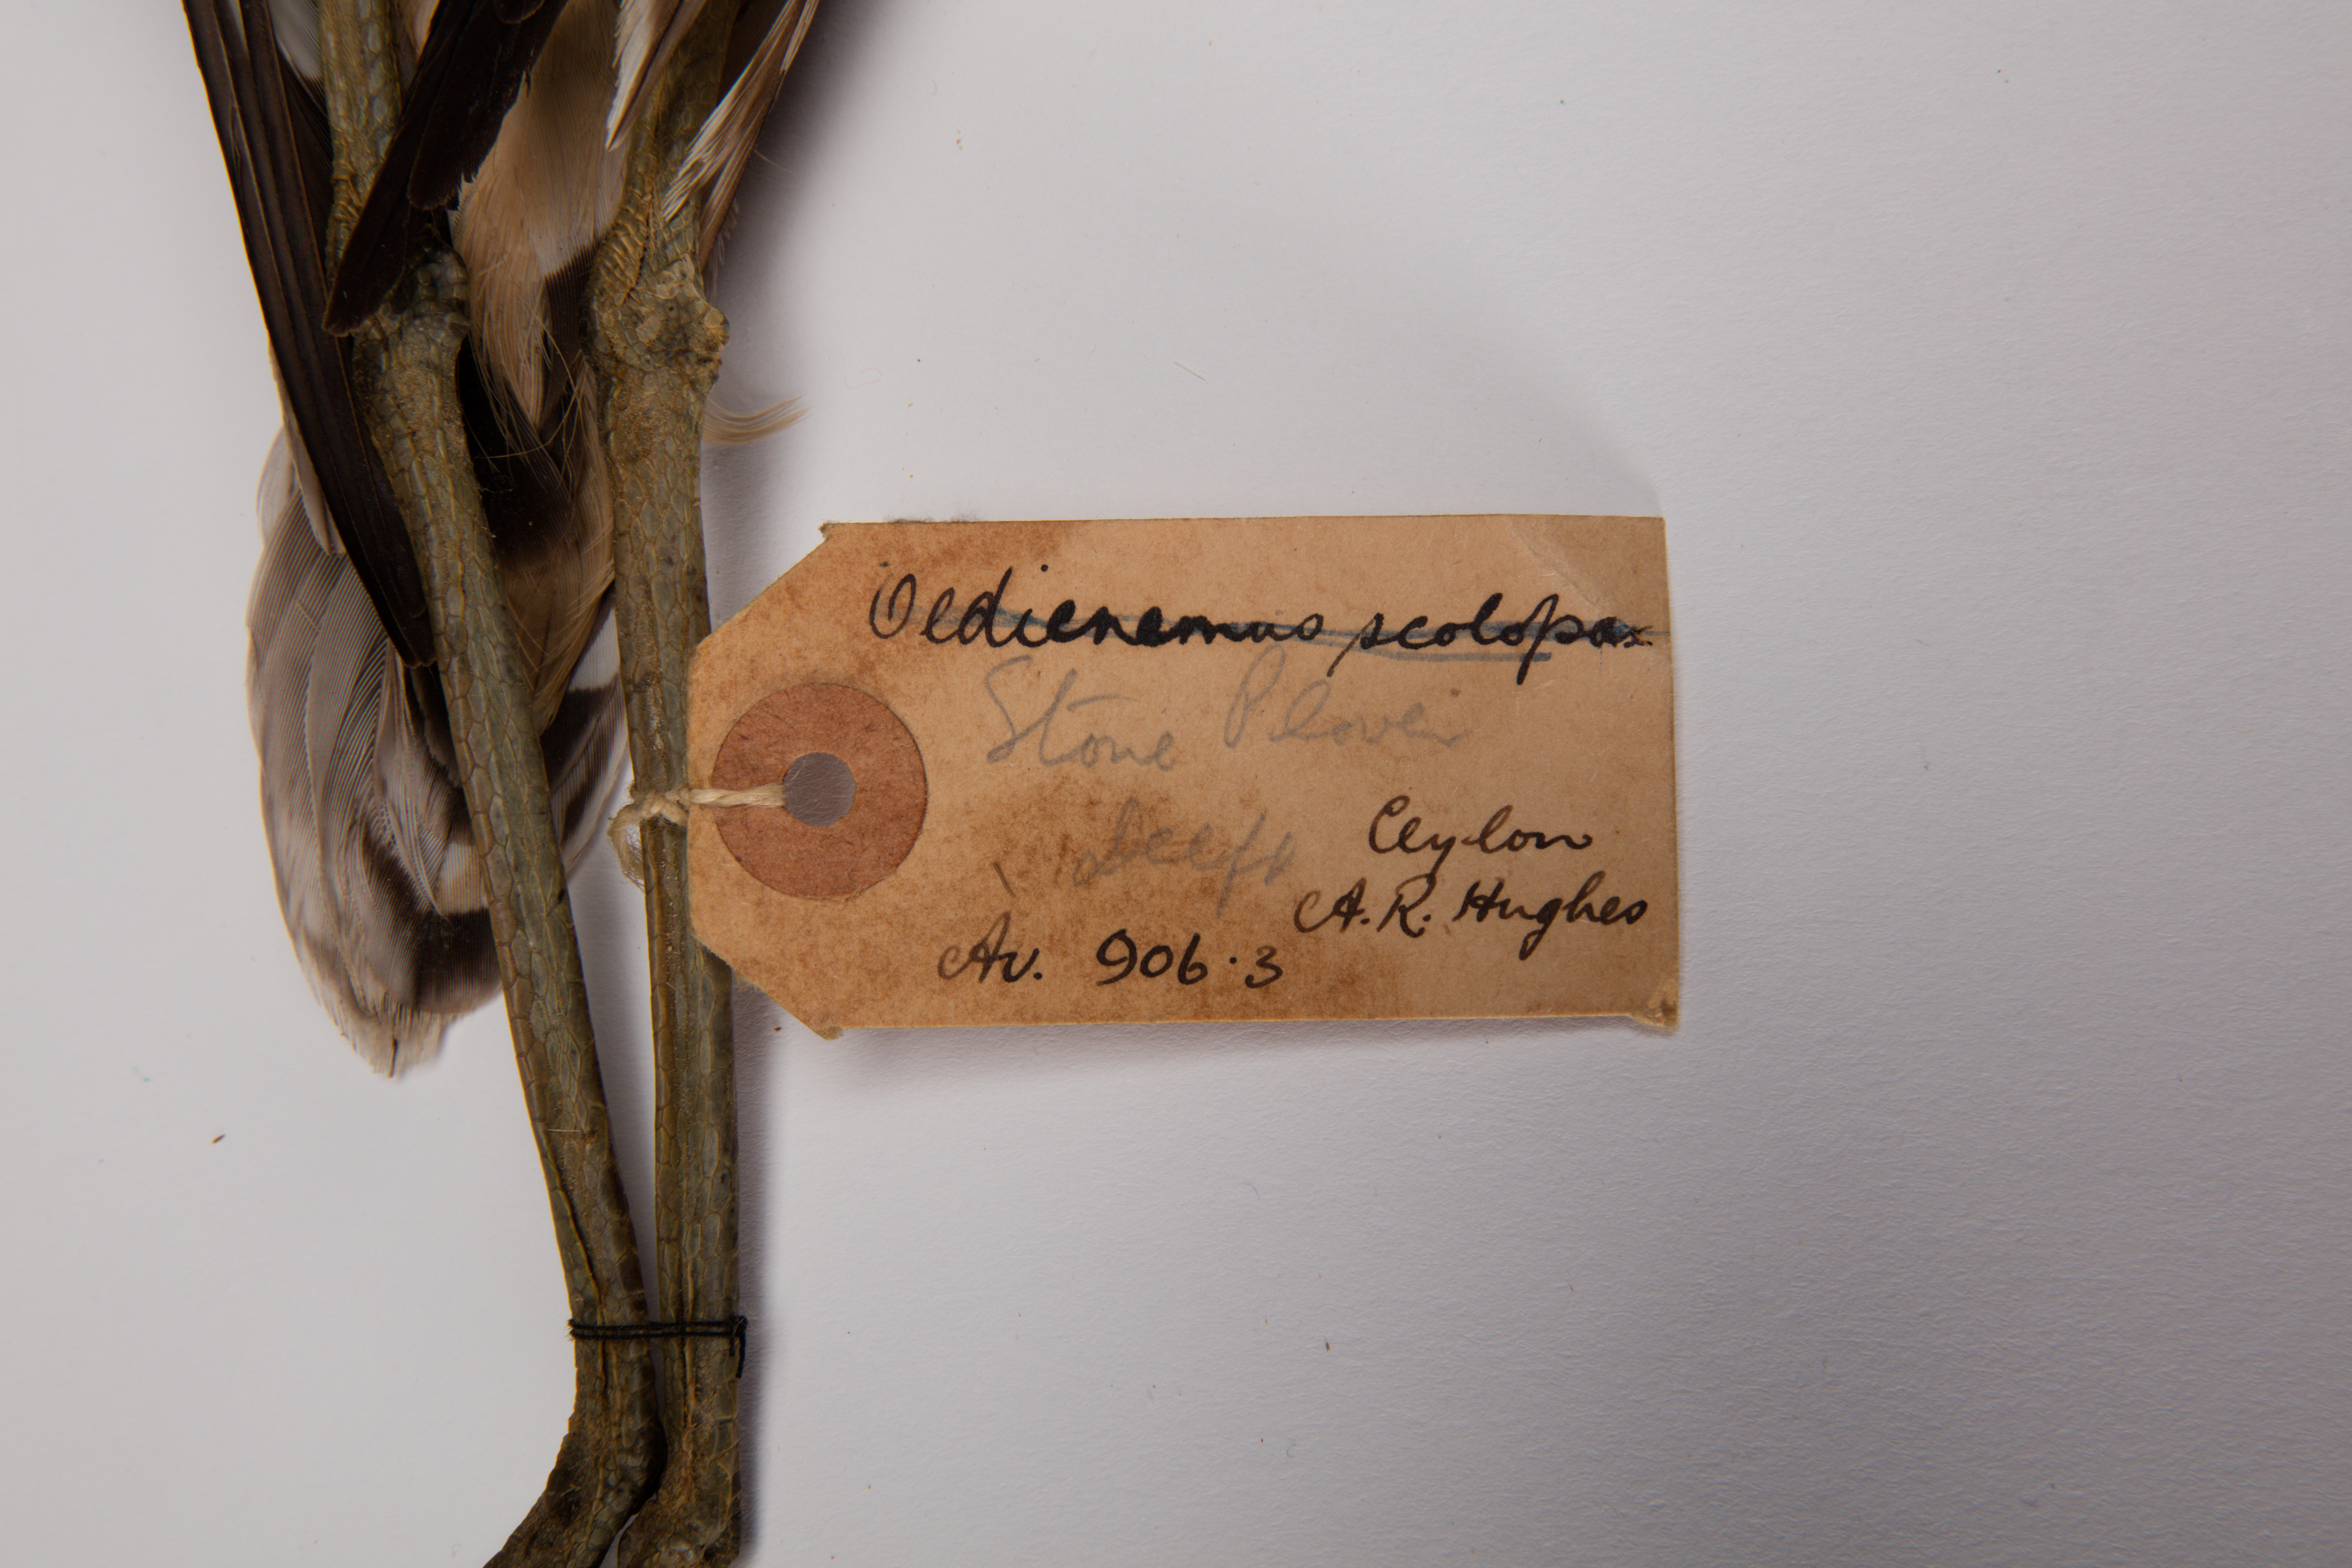 Oedicnemus scolopax
Stone Plover
Ceylon
A. R. Hughes
Av. 906.3